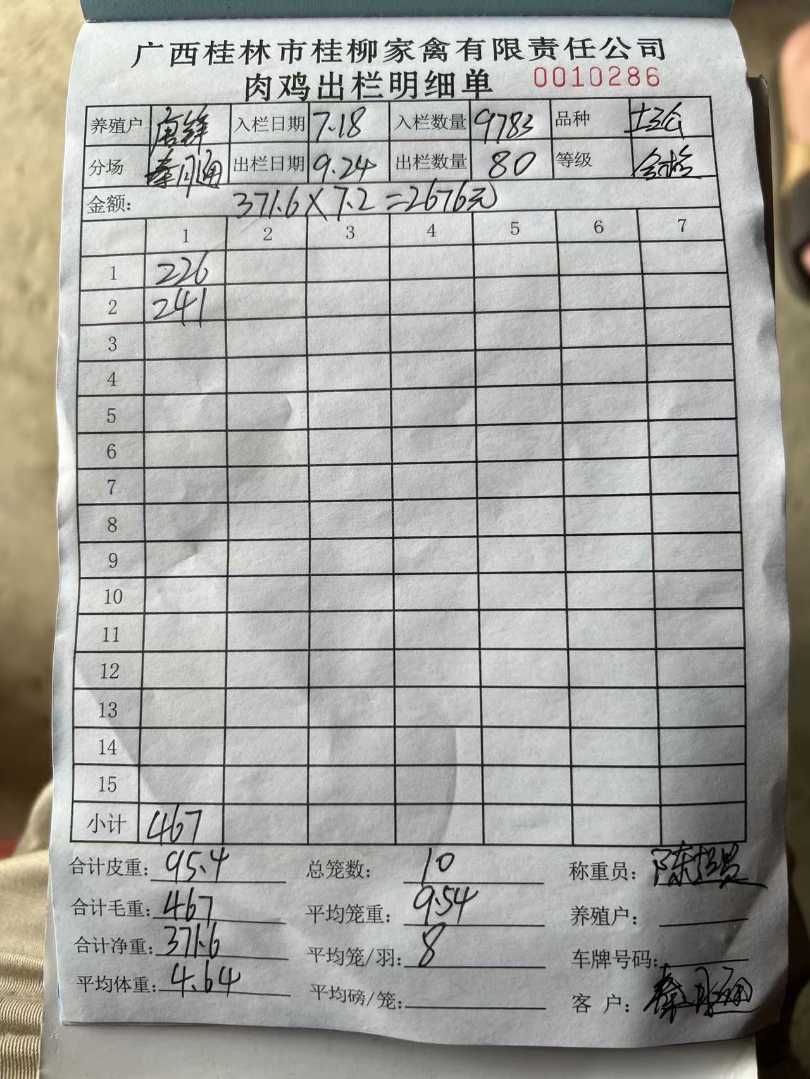 广西桂林市桂柳家禽有限责任公司
肉鸡出栏明细单 0010286
养殖户 唐锋 入栏日期 7.18 入栏数量 9783 品种
分场 秦月通 出栏日期 9.24 出栏数量 80 等级
金额: 371.6×7.2=2676元
1 2 3 4 5 6 7
1 226
2 241
3
4
5
6
7
8
9
10
11
12
13
14
15
小计 467
合计皮重: 95.4 总笼数: 10 称重员:
合计毛重: 467 平均笼重: 9.54 养殖户:
合计净重: 371.6 平均笼/羽: 8 车牌号码:
平均体重: 4.64 平均磅/笼: 客 户: 秦月通